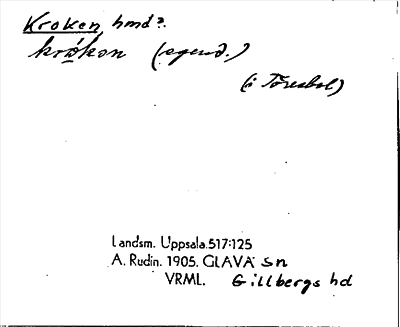 Kroken, hmd?.
krókən (egend.)
(i Töresbol)
Landsm. Uppsala.517:125
A. Rudin. 1905. GLAVA sn
VRML. Gillbergs hd